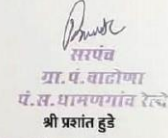 सरपंच
ग्रा.पं.वाढोणा
पं.स.धामणगांव रेल्वे
श्री प्रशांत हुडे